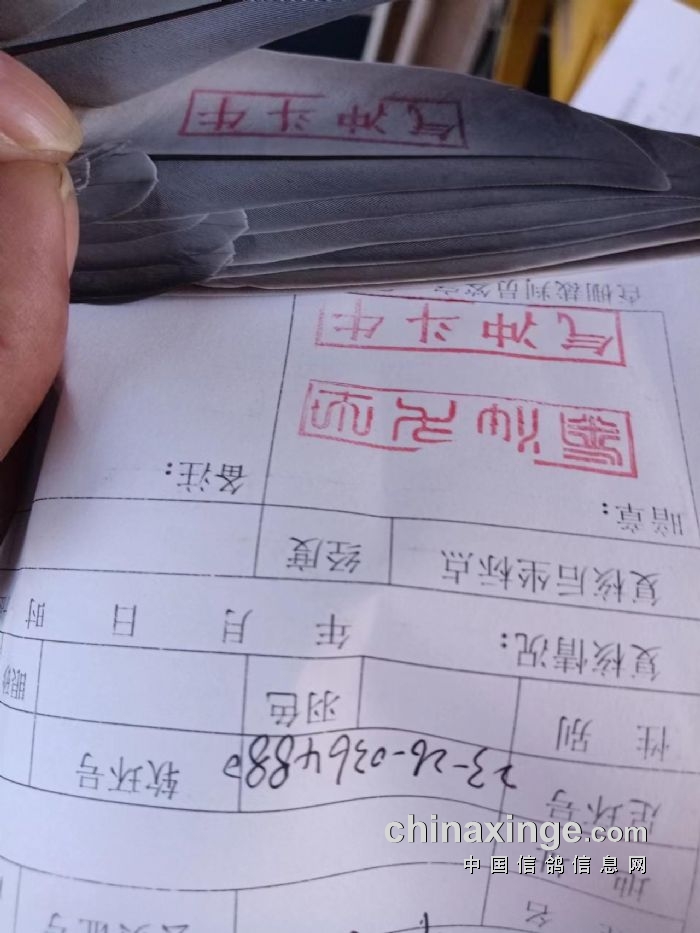 名
地 址
足环号 23-26-0364880 软环号
性 别 羽色 眼砂
复核情况: 年 月 日 时
复核后坐标点 经度
暗章: 备注:
气冲斗牛
裁判员签字
气冲斗牛
chinaxinge.com
中国信鸽信息网